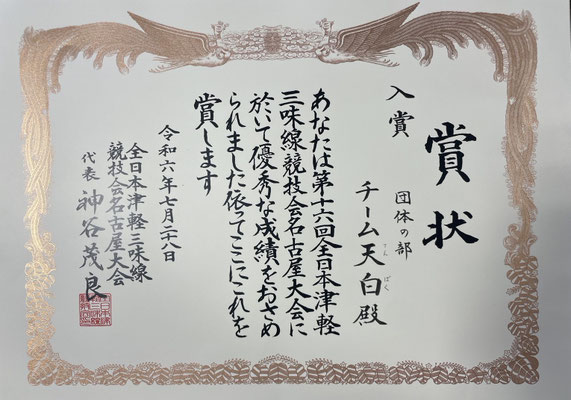 賞状
入賞
団体の部
チーム天白殿
てん ぱく
あなたは第十六回全日本津軽
三味線競技会名古屋大会に
於いて優秀な成績をおさめ
られました依ってここにこれを
賞します
令和六年七月二八日
全日本津軽三味線
競技会名古屋大会
代表 神谷茂良